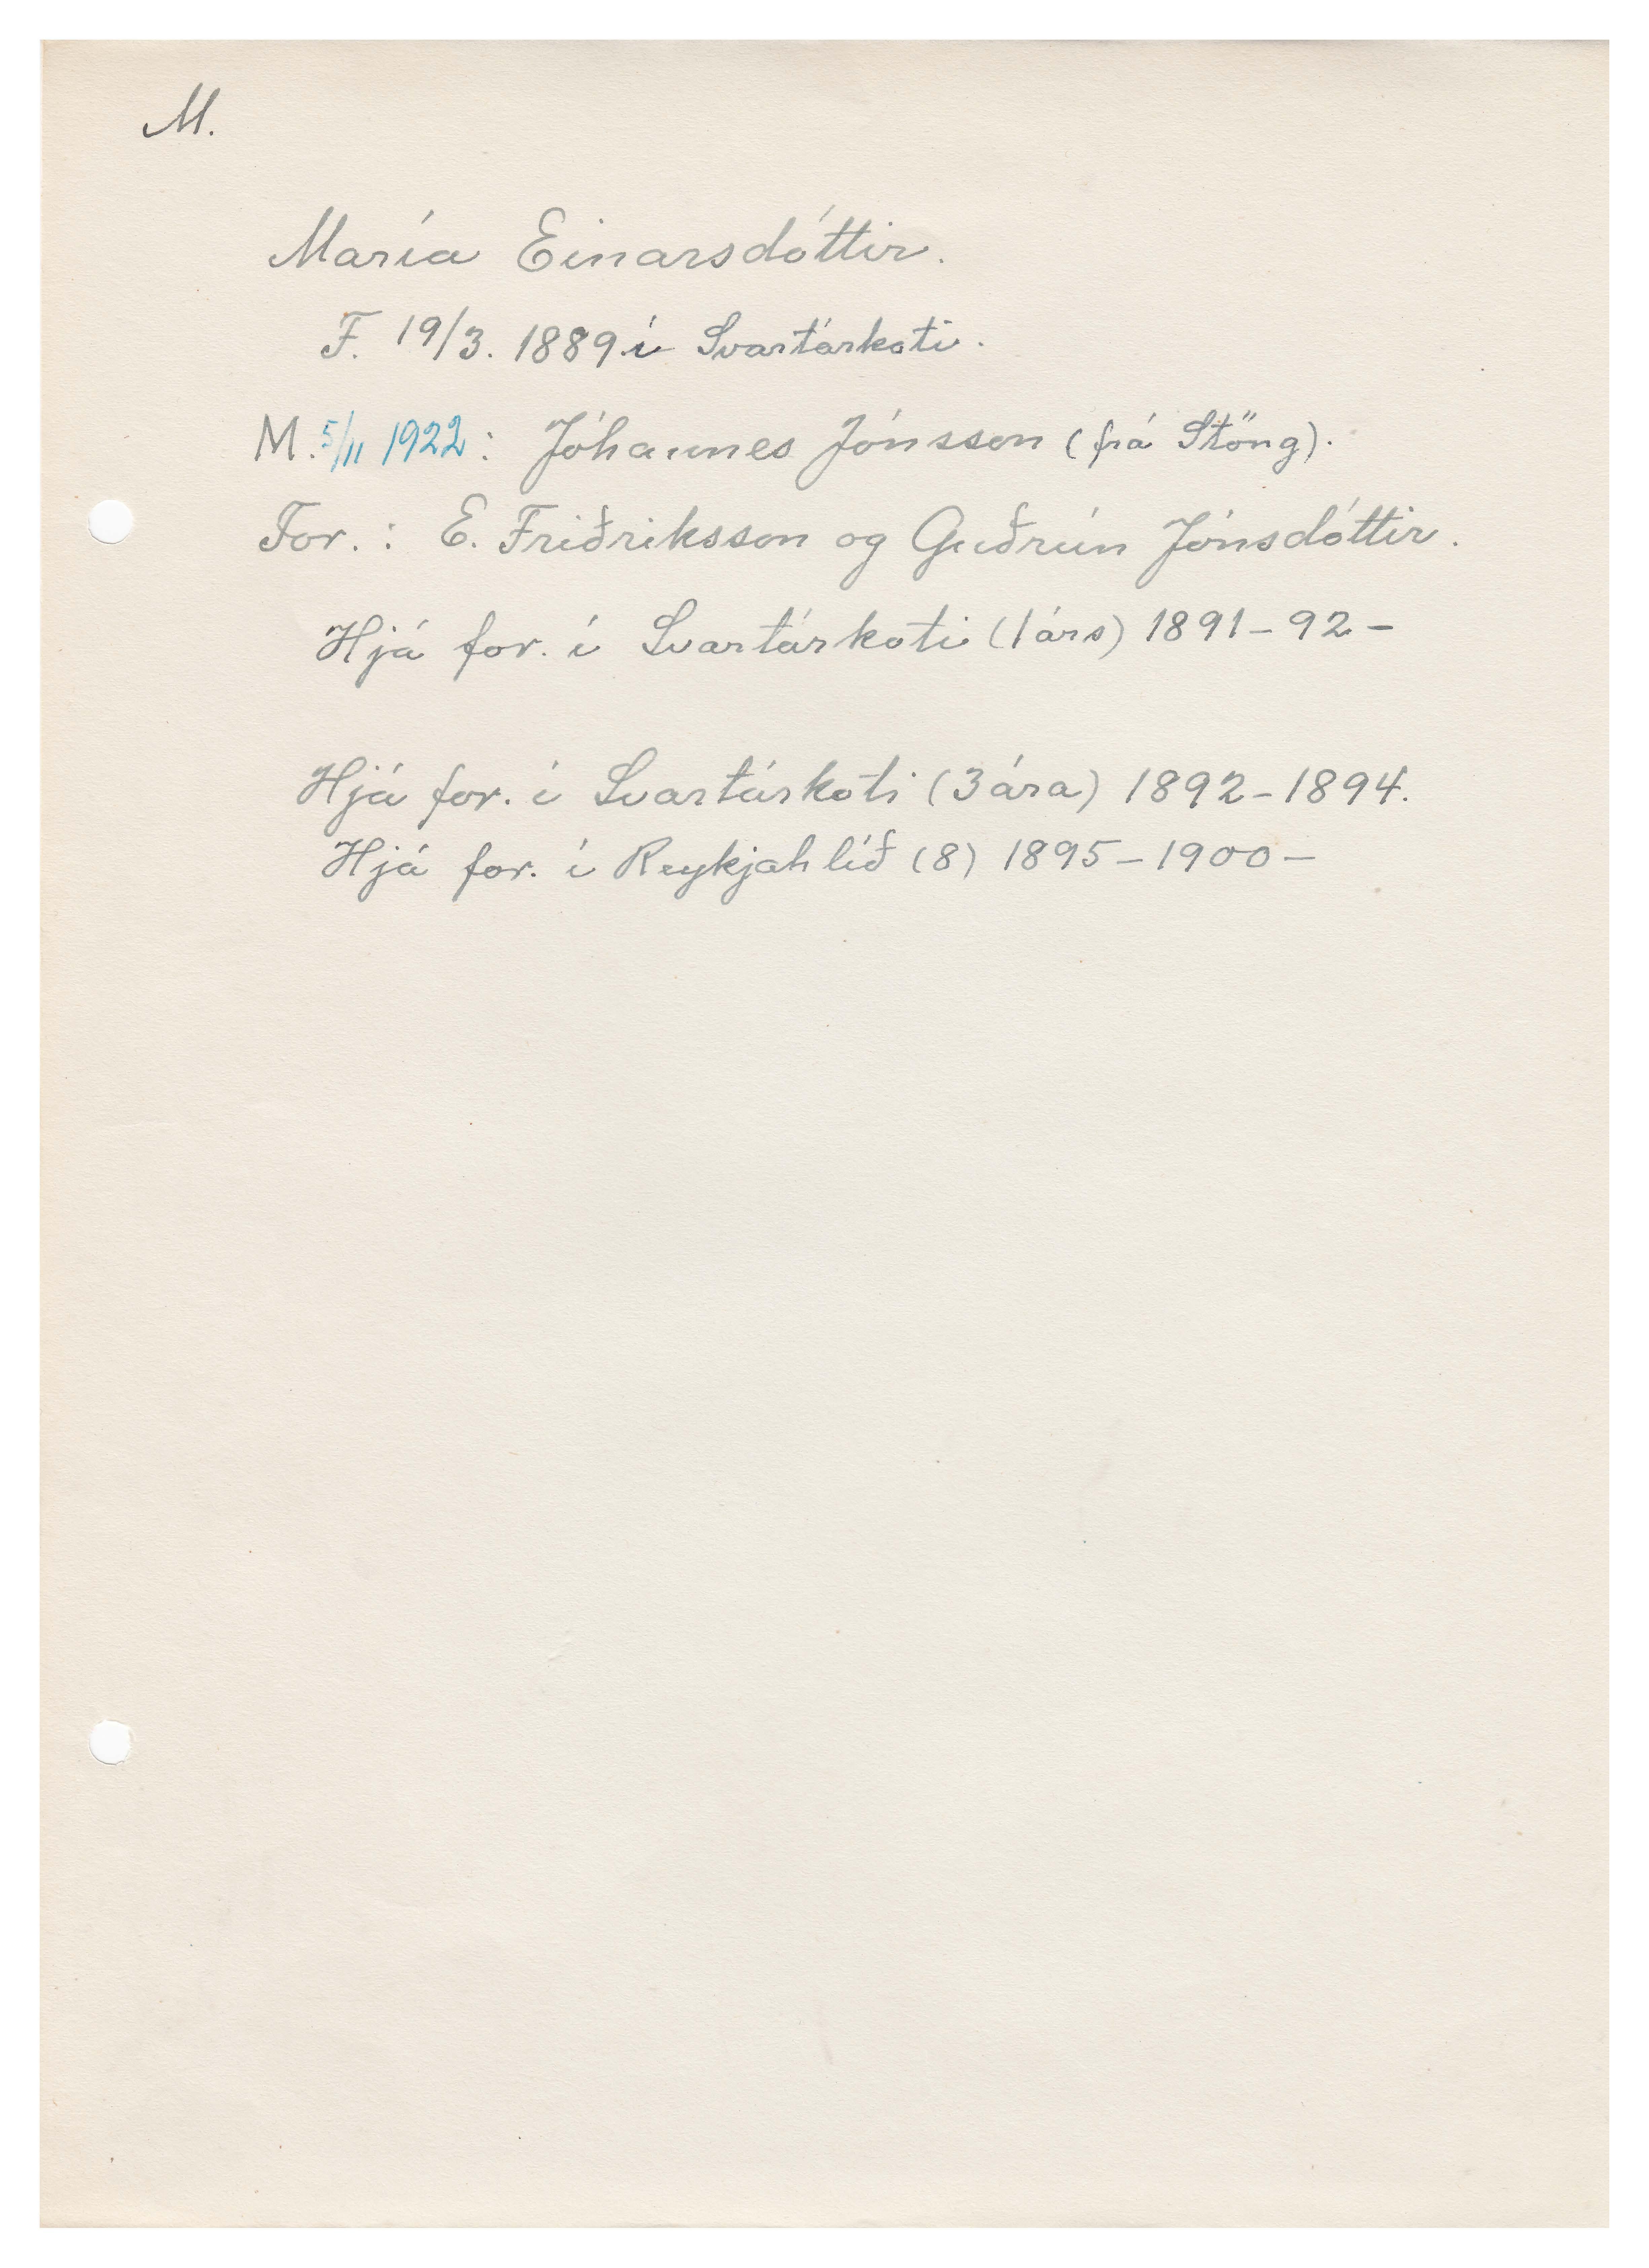 M.
María Einarsdóttir.
F. 19/3. 1889 í Svartárkoti.
M. 5/11 1922: Jóhannes Jónsson (frá Stöng).
For.: E. Friðriksson og Guðrún Jónsdóttir.
Hjá for. í Svartárkoti (1 árs) 1891-92-
Hjá for. í Svartárkoti (3 ára) 1892-1894.
Hjá for. í Reykjahlíð (8) 1895-1900-